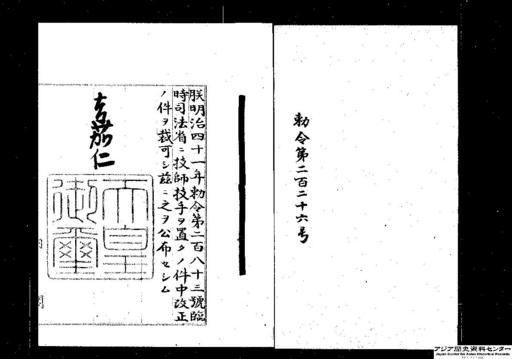 勅令第二百二十六号
朕明治四十一年勅令第二百八十三號臨
時司法省ニ技師技手ヲ置クノ件中改正
ノ件ヲ裁可シ茲ニ之ヲ公布セシム
嘉仁
天皇
御璽
内
閣
アジア歴史資料センター
Japan Center for Asian Historical Records